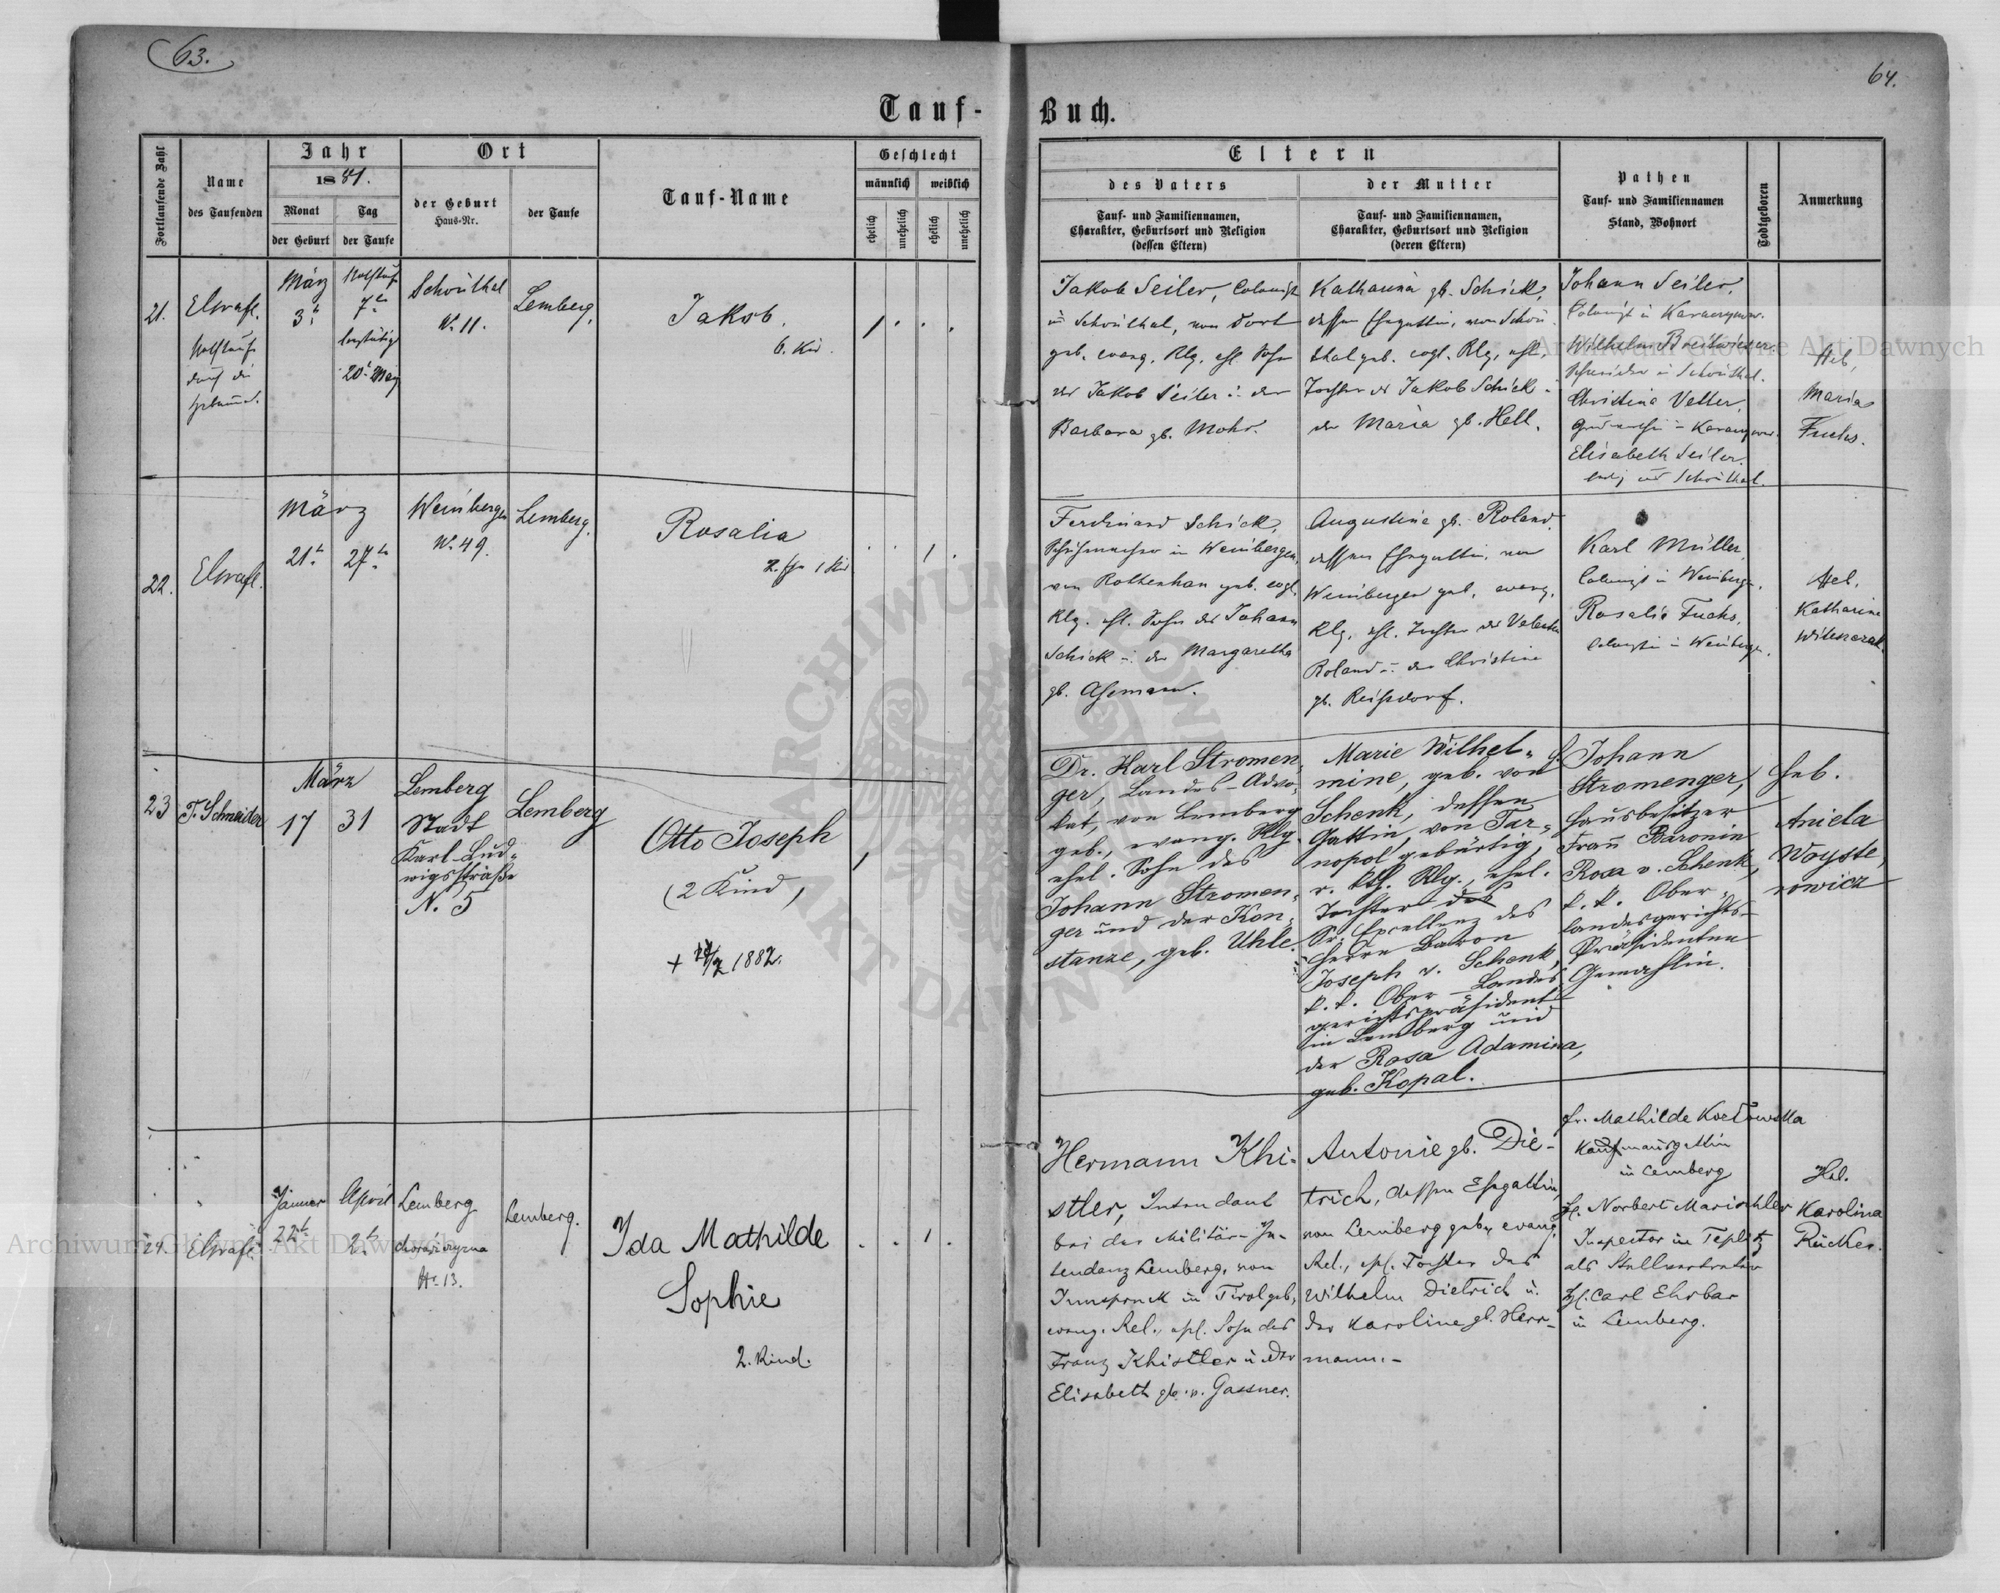 63.
64.
Tauf-
Buch.
Fortlaufende Zahl
Name
des Taufenden
Jahr
1881.
Monat
Tag
der Geburt
der Taufe
Ort
der Geburt
Haus-Nr.
der Taufe
Tauf-Name
Geschlecht
männlich
weiblich
ehelich
unehelich
ehelich
unehelich
Eltern
des Vaters
Tauf- und Familiennamen,
Charakter, Geburtsort und Religion
(dessen Eltern)
der Mutter
Tauf- und Familiennamen,
Charakter, Geburtsort und Religion
(deren Eltern)
Pathen
Tauf- und Familiennamen
Stand, Wohnort
Todtgeboren
Anmerkung
21.
März
3t.
Nothtauf
7t.
20t. März
Schönthal
N. 11.
Lemberg.
Jakob.
6. Kind.
1 . . .
Jakob Seiler, Colonist
in Schönthal, von dort
geb. evang. Rlg. ehl. Sohn
des Jakob Seiler u. der
Barbara gb. Mohr.
Katharina gb. Schick,
dessen Ehegattin, von Schön-
thal geb. evgl. Rlg. ehl.
Tochter des Jakob Schick u.
der Maria gb. Hell.
Johann Seiler,
Wilhelm Breitwieser
Schneider in Schönthal.
Christina Vetter,
Elisabeth Seiler,
ledig aus Schönthal.
Heb.
Maria
Fuchs.
22.
März
21t.
27t.
Weinbergen
N. 49.
Lemberg.
Rosalia
2. Ehe 1 Kind
. . 1 .
Ferdinand Schick,
Schuhmacher in Weinbergen,
von Rottenhan geb. evgl.
Rlg. ehl. Sohn des Johann
Schick u. der Margaretha
Augustine gb. Roland,
dessen Ehegattin, von
Weinbergen geb. evang.
Rlg. ehl. Tochter des Valentin
Roland u. der Christine
gb. Reissdorf.
Karl Müller,
Colonist in Weinbergen.
Rosalia Fuchs,
Colonistin in Weinbergen.
Heb.
Katharine
23
T. Schneider
März
17
31
Lemberg
Stadt
Karl-Lud-
wigsstraße
N. 5
Lemberg
Otto Joseph
(2 Kind)
1882.
1
Dr. Karl Stromen-
ger, Landes-Advo-
kat, von Lemberg
geb., evang. Rlg.
ehel. Sohn des
Johann Stromen-
ger und der Kon-
stanze, geb. Uhle.
Marie Wilhel-
mine, geb. von
Schenk, dessen
Gattin, von Tar-
nopol gebürtig,
r. kth. Rlg., ehel.
Tochter des
Sr. Excellenz des
Herrn Baron
Joseph v. Schenk,
k. k. Ober-Landes
gerichtspräsident
in Lemberg und
der Rosa Adamina,
geb. Kopal.
H. Johann
Stromenger,
Hausbesitzer
Frau Baronin
Rosa v. Schenk,
k. k. Ober-
landesgerichts-
Präsidenten
Gemahlin.
Heb.
Aniela
Woyste-
nowicz
24.
Jänner
22t.
April
2t.
Lemberg
Nr. 13.
Lemberg.
Ida Mathilde
Sophie
2. Kind.
. . 1 .
Hermann Khi-
stler, Intendant
bei der Militär-In-
tendanz Lemberg, von
Innspruck in Tirol geb.
evang. Rel., ehl. Sohn des
Franz Khistler u. der
Elisabeth gb. v. Gassner.
Antonie gb. Die-
trich, dessen Ehegattin,
von Lemberg geb. evang.
Rel., ehl. Tochter des
Wilhelm Dietrich u.
der Karoline gb. Herr-
mann.-
Fr. Mathilde
Kaufmansgattin
in Lemberg
H. Norbert Marischler
Inspector in Teplitz
als Stellvertreter
H. Carl Ehrbar
in Lemberg.
Heb.
Karolina
Rücker.
Archiwum Główne Akt Dawnych
Archiwum Główne Akt Dawnych